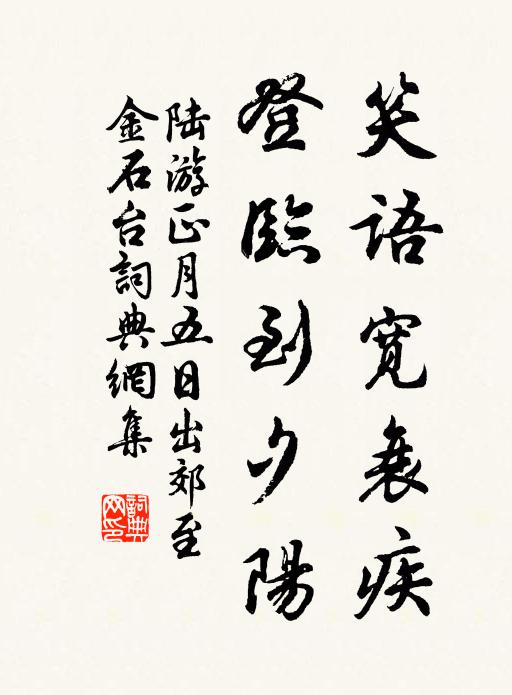 笑語寬衰疾
登臨到夕陽
陆游正月五日出郊至
金石台詞典網集
詞典网印